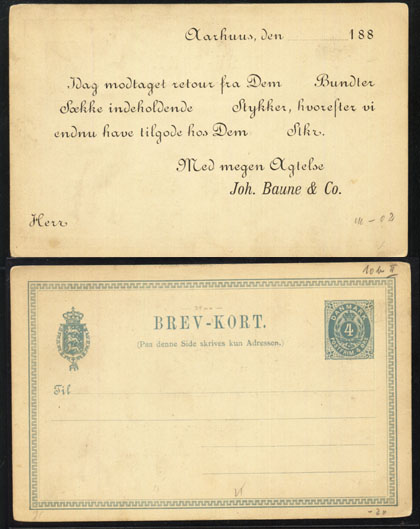 Aarhuus, den 188
Idag modtaget retour fra Dem Bundter
Sække indeholdende Stykker, hvorefter vi
endnu have tilgode hos Dem Stkr.
Med megen Agtelse
Joh. Baune & Co.
Herr
BREV-KORT.
(Paa denne Side skrives kun Adressen.)
DANMARK
4
Til